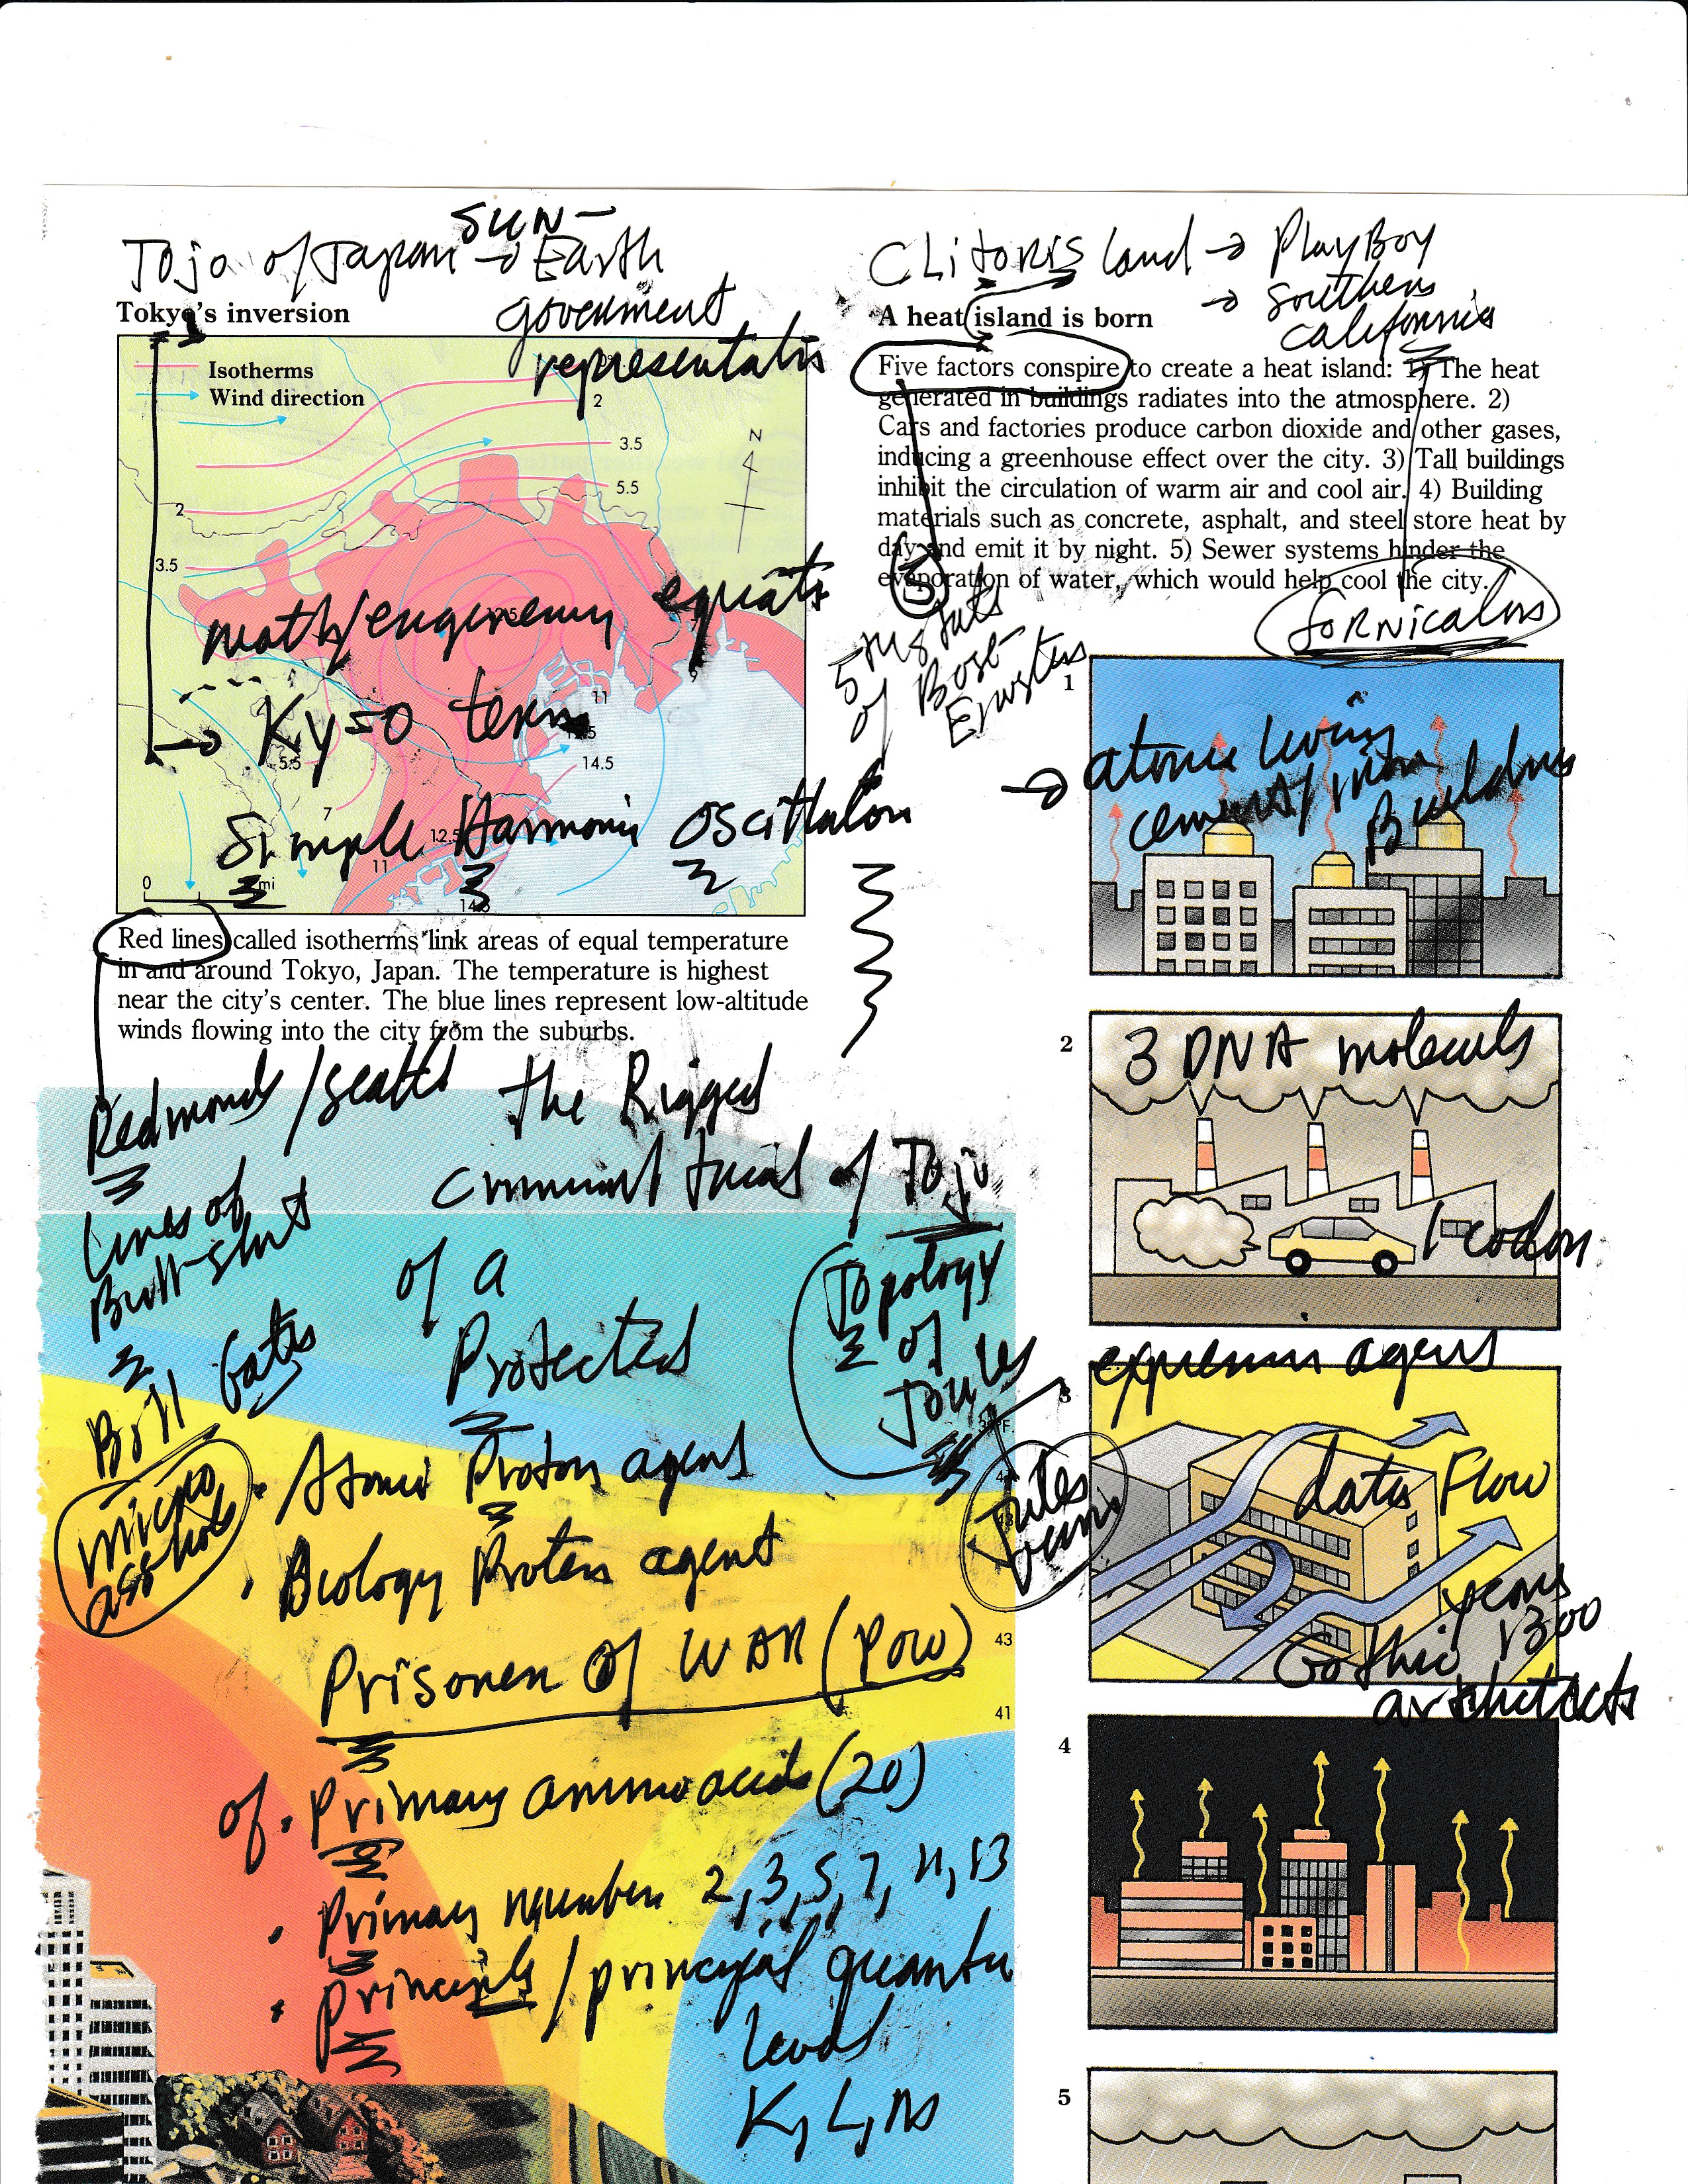 SUN-
Tojo of Japan → Earth
government
representatis
Tokyo's inversion
Isotherms
Wind direction
2
3.5
5.5
N
2
3.5
12.5
math/engineering equats
9
11
Ky=0 term
12.5
5.5
14.5
7
Simple Harmonic oscillation
12.5
11
0
mi
14.5
Red lines called isotherms link areas of equal temperature
in and around Tokyo, Japan. The temperature is highest
near the city's center. The blue lines represent low-altitude
winds flowing into the city from the suburbs.
Redmond/Seattl
Lines of
Bull-shit
Bill Gates
micro
asshole
the Rigged
criminal trial of Tojo
of a
Protected
Topology
of
Joules
Jules
• Atomic Proton agent
• Biology Protein agent
Prisoner of WAR (POW)
43
41
of • Primary amino acids (20)
• Primary number 2, 3, 5, 7, 11, 13
• Principle/principal quantu
level
K, L, M
CLitoris land → PlayBoy
→ southern
california
A heat island is born
Five factors conspire to create a heat island: 1) The heat
generated in buildings radiates into the atmosphere. 2)
Cars and factories produce carbon dioxide and other gases,
inducing a greenhouse effect over the city. 3) Tall buildings
inhibit the circulation of warm air and cool air. 4) Building
materials such as concrete, asphalt, and steel store heat by
day and emit it by night. 5) Sewer systems hinder the
evaporation of water, which would help cool the city.
5
of Bose-
1
→ atomic living
cement/
Buildings
2
3 DNA molecules
1 codon
3
expression agens
data Flow
years
1300
Gothic
architects
4
5